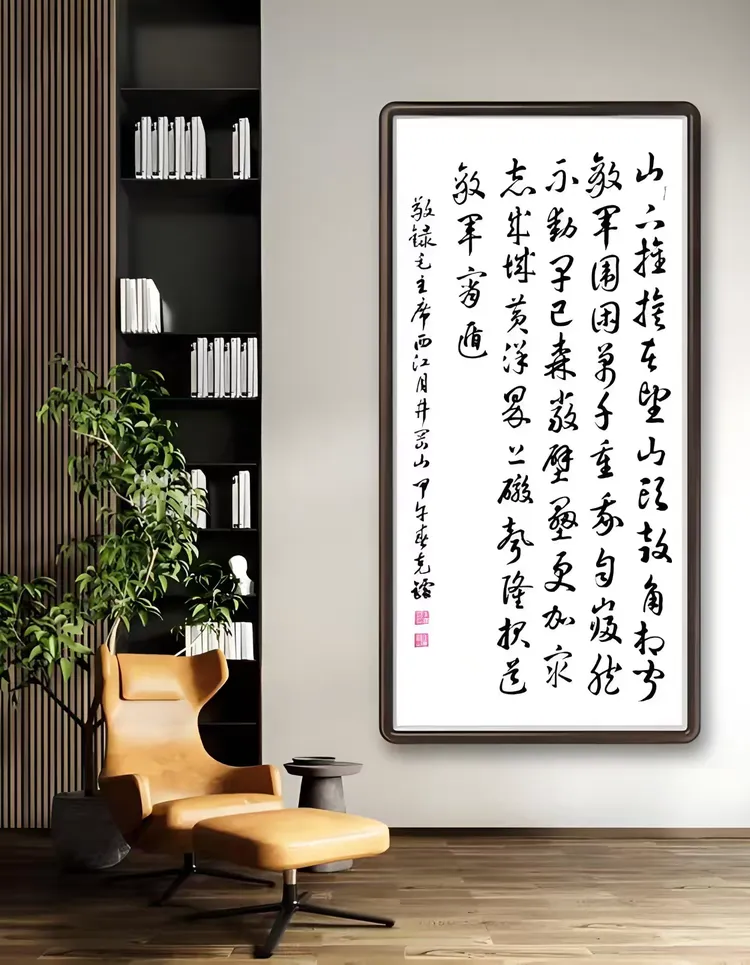 山下旌旗在望山头鼓角相闻
敌军围困万千重我自岿然
不动早已森严壁垒更加众
志成城黄洋界上礮声隆报道
敌军宵遁
敬録毛主席西江月井冈山甲午春克